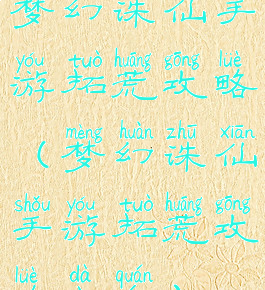 梦幻诛仙手
yóu tuò huāng gōng lüè
游拓荒攻略
mèng huàn zhū xiān
(梦幻诛仙
shǒu yóu tuò huāng gōng
手游拓荒攻
lüè dà quán